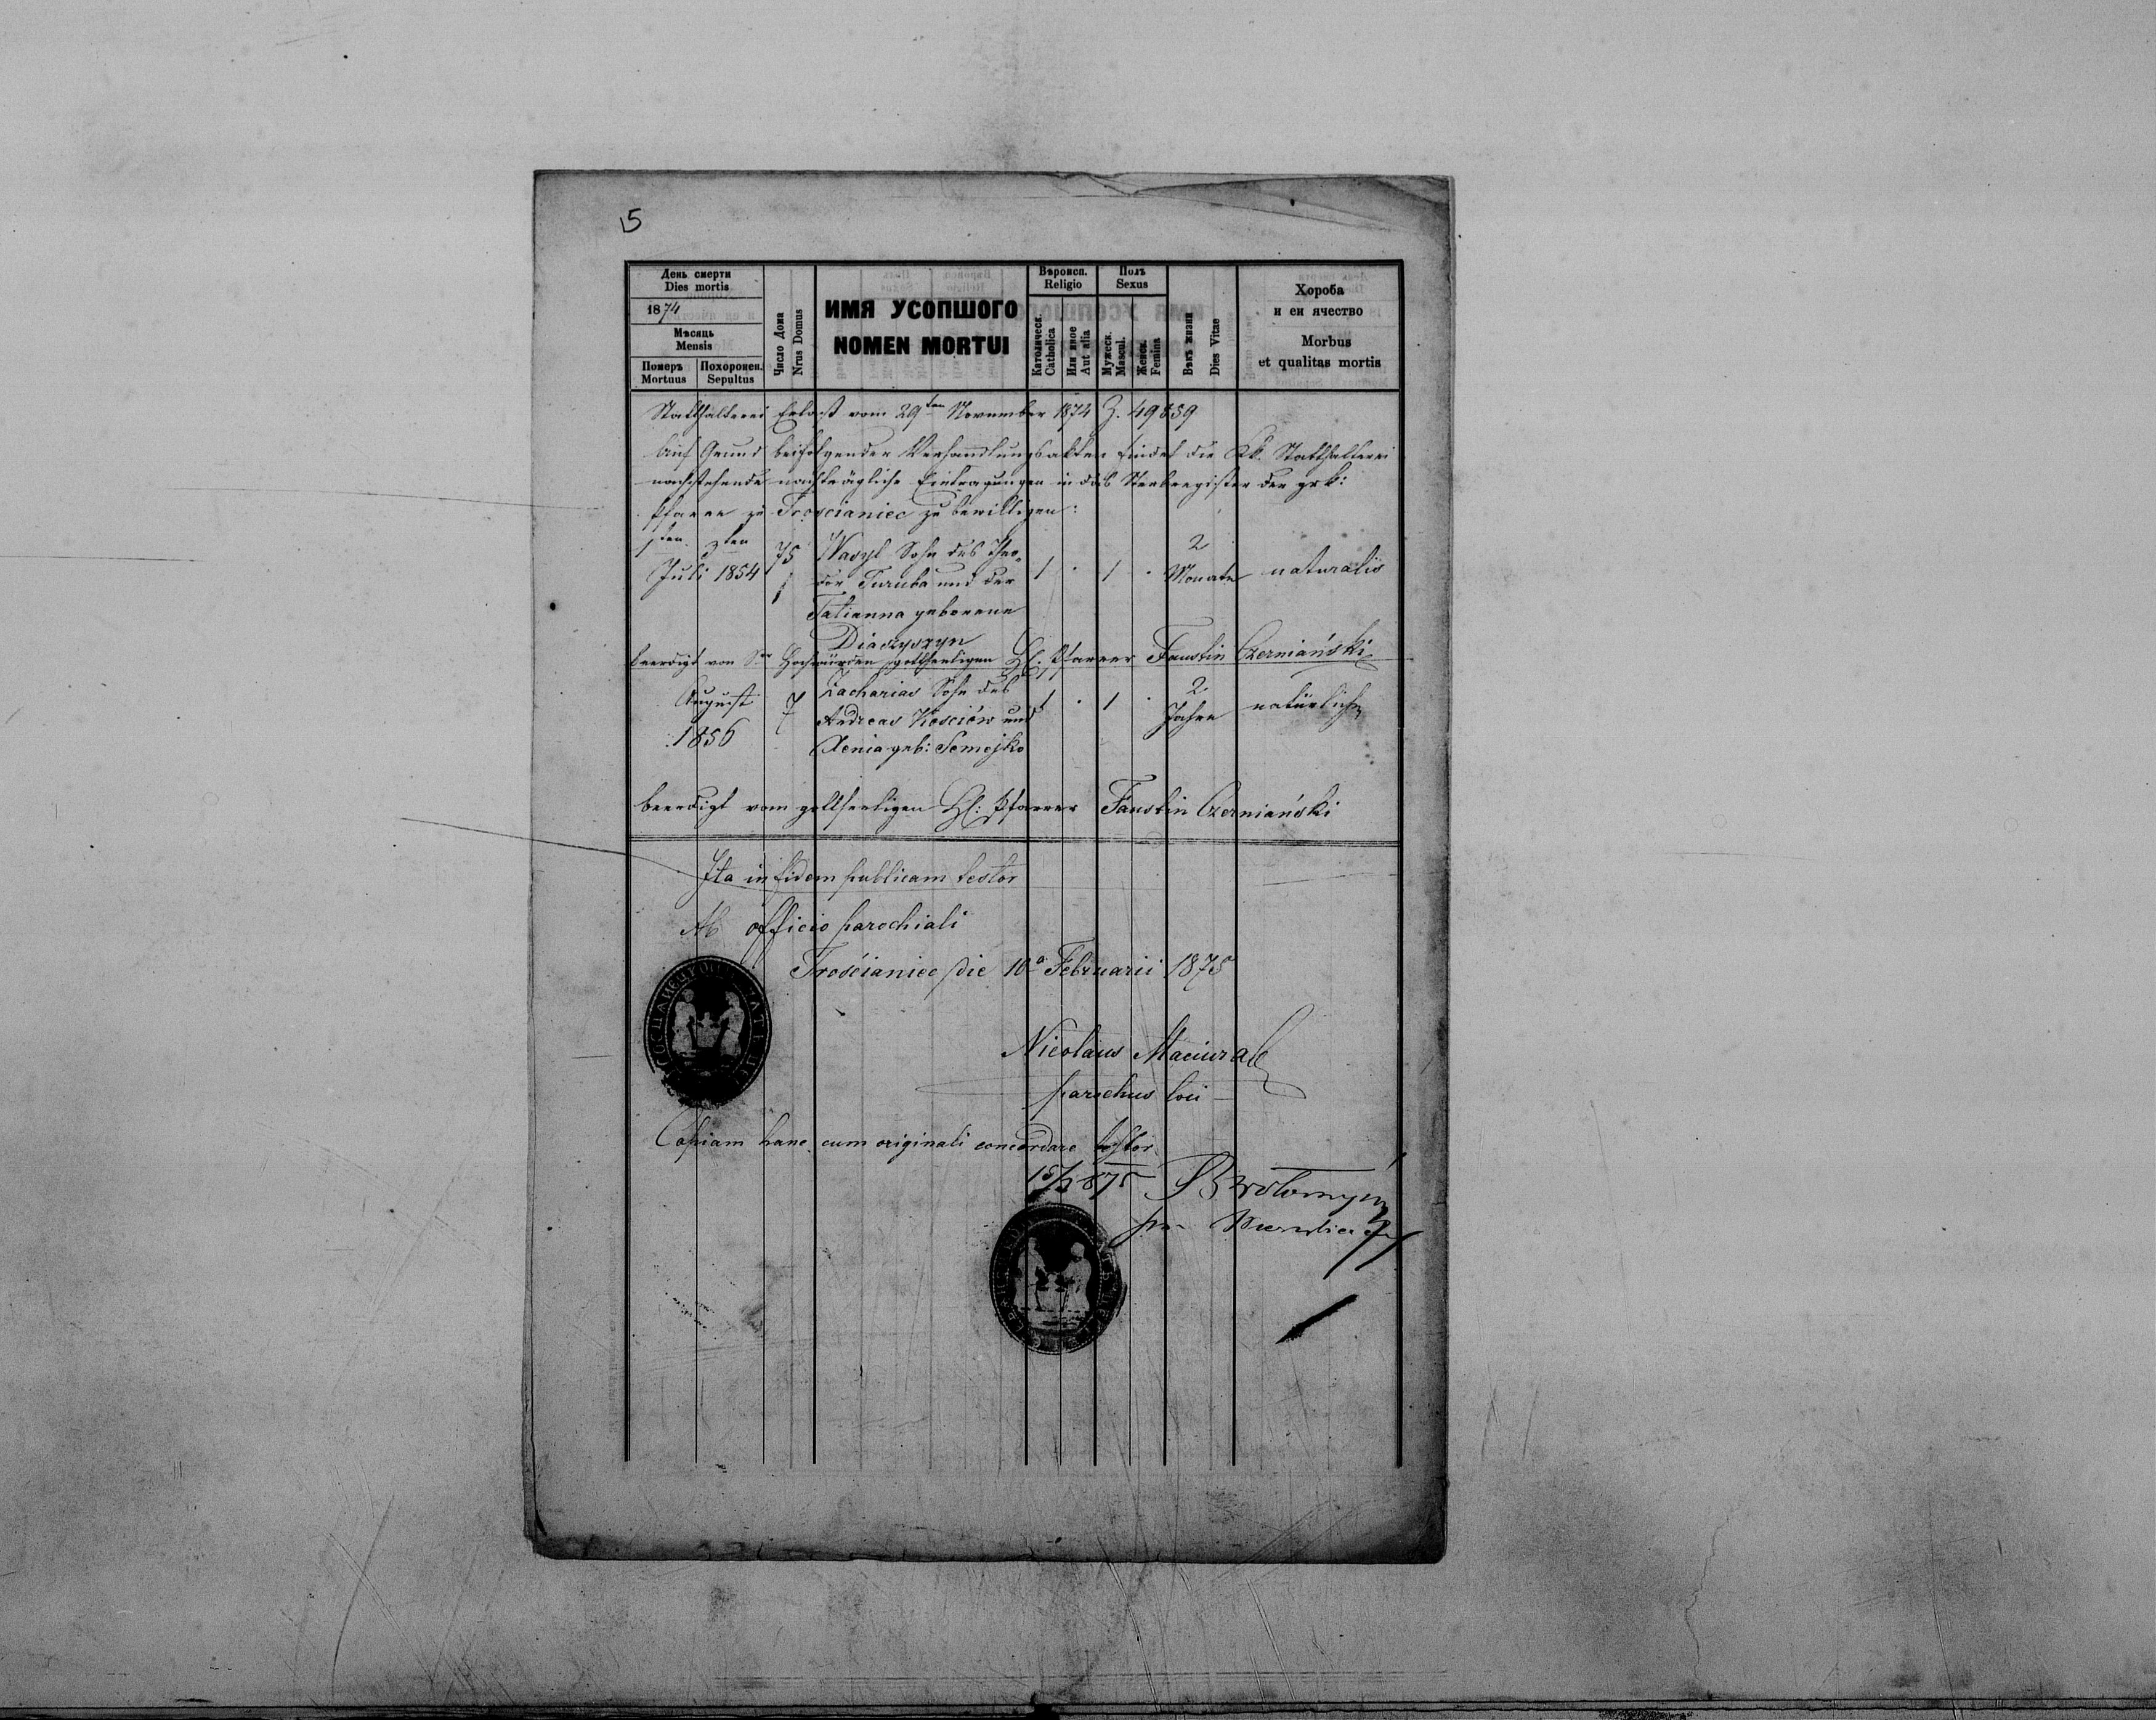 5
День смерти
Dies mortis
1874
Мѣсяць
Mensis
Померъ
Mortuus
Похоронен.
Sepultus
Число Дома
Nrus Domus
ИМЯ УСОПШОГО
NOMEN MORTUI
Вѣроисп.
Religio
Католическ.
Catholica
Или иное
Aut alia
Полъ
Sexus
Мужеск.
Mascul.
Женск.
Femina
Вѣкъ жизни
Dies Vitae
Хороба
и еи ячество
Morbus
et qualitas mortis
Statthalterei Erlaß vom 29ten November 1874 Z. 49839
Auf Grund beifolgender Verhandlungsakten findet die kk. Statthalterei
nachstehende nachträgliche Eintragungen in das Sterberegister der grk:
Pfarre zu Trościaniec zu bewilligen:
1ten 3ten
Juli 1854
75
1
Wasyl Sohn des Theo-
dor Turuba und der
Tatianna geborene
Diaczyszyn
1 · 1 ·
2
Monate
naturalis
beerdigt von Sr Hochwürden gottseeligen H. Pfarrer Faustin Czerniański
August
1856
7
Zacharias Sohn des
Andreas Kościów und
Xenia geb: Semejko
1 · 1 ·
2
Jahre
natürliche
beerdigt vom gottseeligen H: Pfarrer Faustin Czerniański
Ita in fidem publicam testor
Ab officio parochiali
Trościaniec die 10a Februarii 1875
Nicolaus Maciurak
parochus loci
Copiam hanc cum originali concordare testor